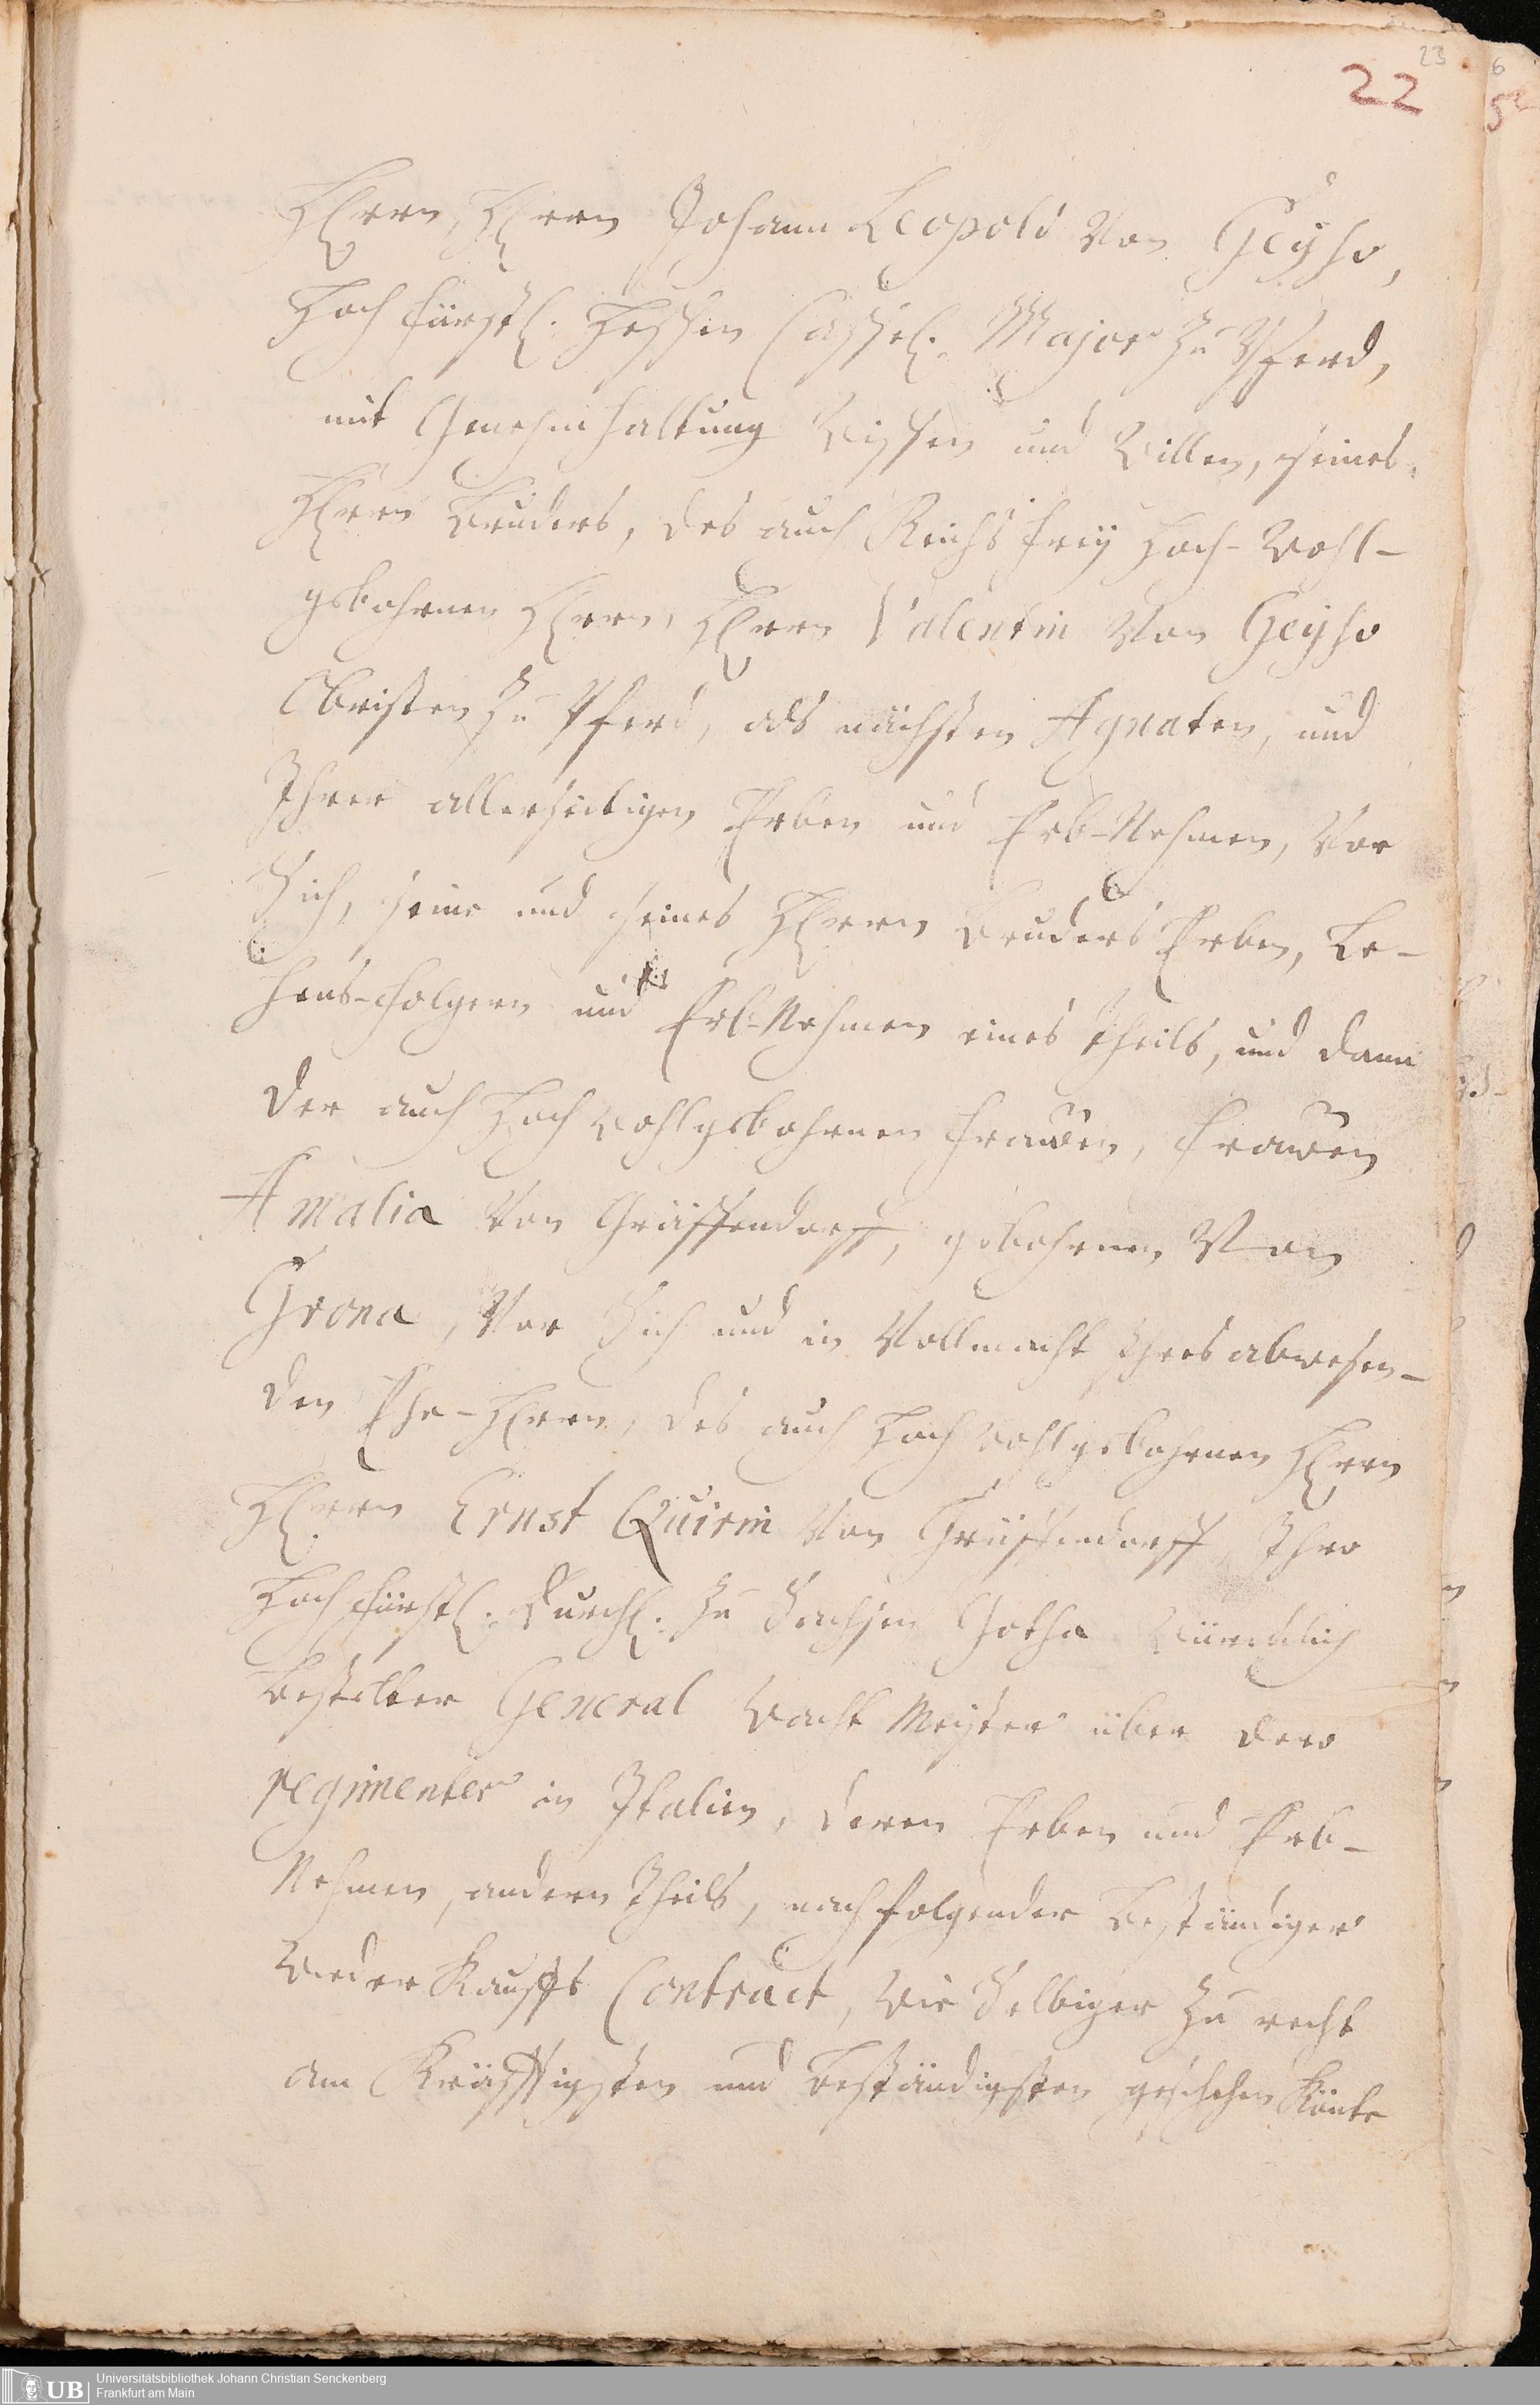 23
22
6
5
Herrn, Herrn Johann Leopold Von Geyso,
Hoch fürstl. Hessen Cassel. Major zu Pferd,
mit Genehmhaltung Wissen und Willen, seines
Herrn Bruders, des auch Reichs frey Hoch-Wohl-
gebohrnen Herrn, Herrn Valentin Von Geyso
Obristen zu Pferd, als nächsten Agnaten, und
Ihrer allerseitigen Erben und Erb-Nehmen, Vor
Sich, seine und seines Herrn Bruders Erben, Le-
hens-folgern und Erb-Nehmen eines theils, und dann
der auch Hoch wohlgebohrnen frauen, frauen
Amalia Von Gräffendorff, gebohrnen Von
Grona, Vor Sich und in Vollmacht Ihres abwesen-
den Ehe-Herrn, des auch Hoch wohlgebohrnen Herrn
Herrn Ernst Quirin Von Gräffendorff, Ihro
Hoch fürstl. Durchl. zu Sachsen Gotha Würcklich
bestelter General Wacht Meister über dero
regimenter in Italien, deren Erben und Erb-
Nehmen, andern Theils, nachfolgender beständiger
Wieder Kauffs Contract, wie Selbiger zu recht
am Kräfftigsten und beständigsten geschehen könte
UB
Universitätsbibliothek Johann Christian Senckenberg
Frankfurt am Main